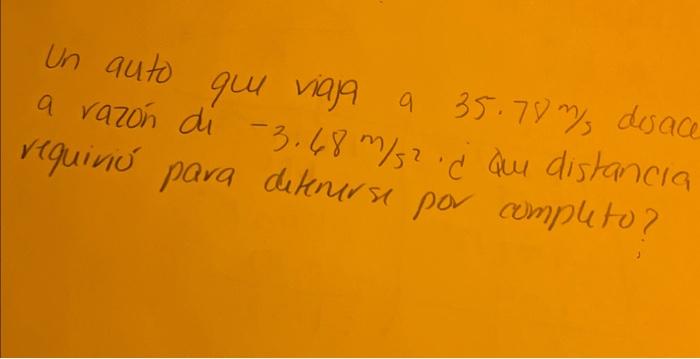 Un auto que viaja a 35.78 m/s desace
a razón de -3.68 m/s². ¿ Que distancia
requirió para detenerse por completo?